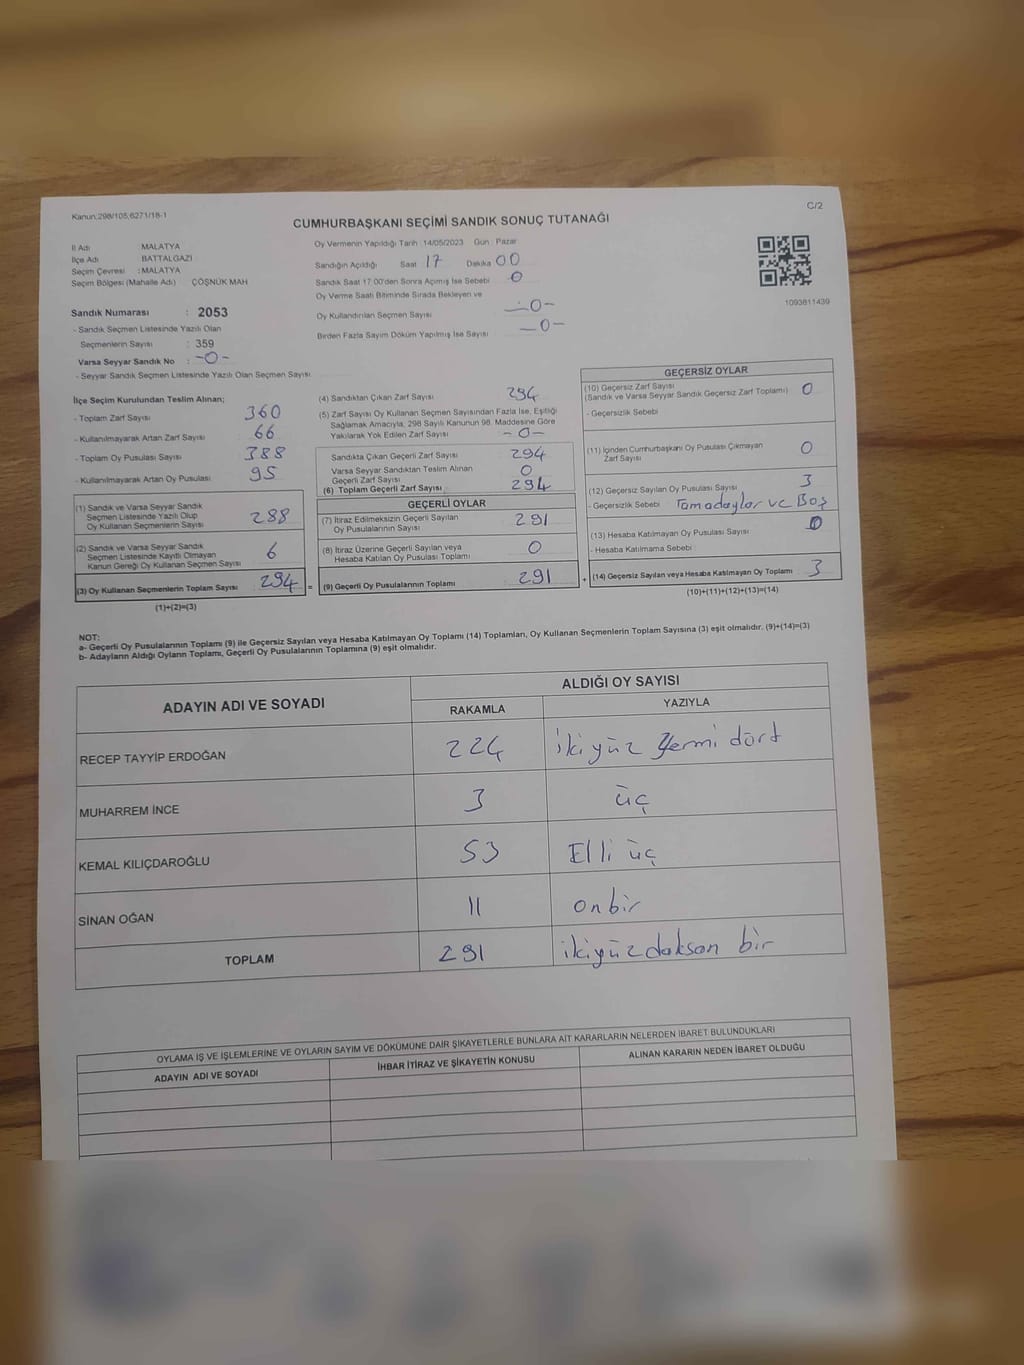 Kanun:298/105,6271/18-1
C/2
CUMHURBAŞKANI SEÇİMİ SANDIK SONUÇ TUTANAĞI
İl Adı MALATYA
İlçe Adı BATTALGAZİ
Seçim Çevresi : MALATYA
Seçim Bölgesi (Mahalle Adı) ÇÖŞNÜK MAH
Oy Vermenin Yapıldığı Tarih 14/05/2023 Gün : Pazar
Sandığın Açıldığı Saat 17 Dakika 00
Sandık Saat 17:00'den Sonra Açımış İse Sebebi 0
Oy Verme Saati Bitiminde Sırada Bekleyen ve
Oy Kullandırılan Seçmen Sayısı —0—
Birden Fazla Sayım Döküm Yapılmış İse Sayısı —0—
1093811439
Sandık Numarası : 2053
- Sandık Seçmen Listesinde Yazılı Olan
Seçmenlerin Sayısı : 359
Varsa Seyyar Sandık No : -0-
- Seyyar Sandık Seçmen Listesinde Yazılı Olan Seçmen Sayısı
İlçe Seçim Kurulundan Teslim Alınan;
- Toplam Zarf Sayısı 360
- Kullanılmayarak Artan Zarf Sayısı 66
- Toplam Oy Pusulası Sayısı 388
- Kullanılmayarak Artan Oy Pusulası 95
(1) Sandık ve Varsa Seyyar Sandık
Seçmen Listesinde Yazılı Olup
Oy Kullanan Seçmenlerin Sayısı 288
(2) Sandık ve Varsa Seyyar Sandık
Seçmen Listesinde Kayıtlı Olmayan
Kanun Gereği Oy Kullanan Seçmen Sayısı 6
(3) Oy Kullanan Seçmenlerin Toplam Sayısı 294 =
(1)+(2)=(3)
(4) Sandıktan Çıkan Zarf Sayısı 294
(5) Zarf Sayısı Oy Kullanan Seçmen Sayısından Fazla İse, Eşitliği
Sağlamak Amacıyla, 298 Sayılı Kanunun 98. Maddesine Göre
Yakılarak Yok Edilen Zarf Sayısı -0-
Sandıkta Çıkan Geçerli Zarf Sayısı 294
Varsa Seyyar Sandıktan Teslim Alınan
Geçerli Zarf Sayısı 0
(6) Toplam Geçerli Zarf Sayısı 294
GEÇERLİ OYLAR
(7) İtiraz Edilmeksizin Geçerli Sayılan
Oy Pusulalarının Sayısı 291
(8) İtiraz Üzerine Geçerli Sayılan veya
Hesaba Katılan Oy Pusulası Toplamı 0
(9) Geçerli Oy Pusulalarının Toplamı 291 +
GEÇERSİZ OYLAR
(10) Geçersiz Zarf Sayısı
(Sandık ve Varsa Seyyar Sandık Geçersiz Zarf Toplamı) 0
- Geçersizlik Sebebi
(11) İçinden Cumhurbaşkanı Oy Pusulası Çıkmayan
Zarf Sayısı 0
(12) Geçersiz Sayılan Oy Pusulası Sayısı 3
- Geçersizlik Sebebi Tamadaylar ve Boş
(13) Hesaba Katılmayan Oy Pusulası Sayısı 0
- Hesaba Katılmama Sebebi
(14) Geçersiz Sayılan veya Hesaba Katılmayan Oy Toplamı 3
(10)+(11)+(12)+(13)=(14)
NOT:
a- Geçerli Oy Pusulalarının Toplamı (9) ile Geçersiz Sayılan veya Hesaba Katılmayan Oy Toplamı (14) Toplamları, Oy Kullanan Seçmenlerin Toplam Sayısına (3) eşit olmalıdır. (9)+(14)=(3)
b- Adayların Aldığı Oyların Toplamı, Geçerli Oy Pusulalarının Toplamına (9) eşit olmalıdır.
ADAYIN ADI VE SOYADI ALDIĞI OY SAYISI
RAKAMLA YAZIYLA
RECEP TAYYİP ERDOĞAN 224 ikiyüz yermi dört
MUHARREM İNCE 3 üç
KEMAL KILIÇDAROĞLU 53 Elli üç
SİNAN OĞAN 11 onbir
TOPLAM 291 ikiyüzdoksan bir
OYLAMA İŞ VE İŞLEMLERİNE VE OYLARIN SAYIM VE DÖKÜMÜNE DAİR ŞİKAYETLERLE BUNLARA AİT KARARLARIN NELERDEN İBARET BULUNDUKLARI
ADAYIN ADI VE SOYADI İHBAR İTİRAZ VE ŞİKAYETİN KONUSU ALINAN KARARIN NEDEN İBARET OLDUĞU